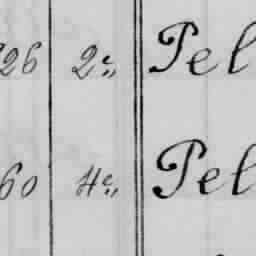 26 2e,, Pel
60 4e,, Pel